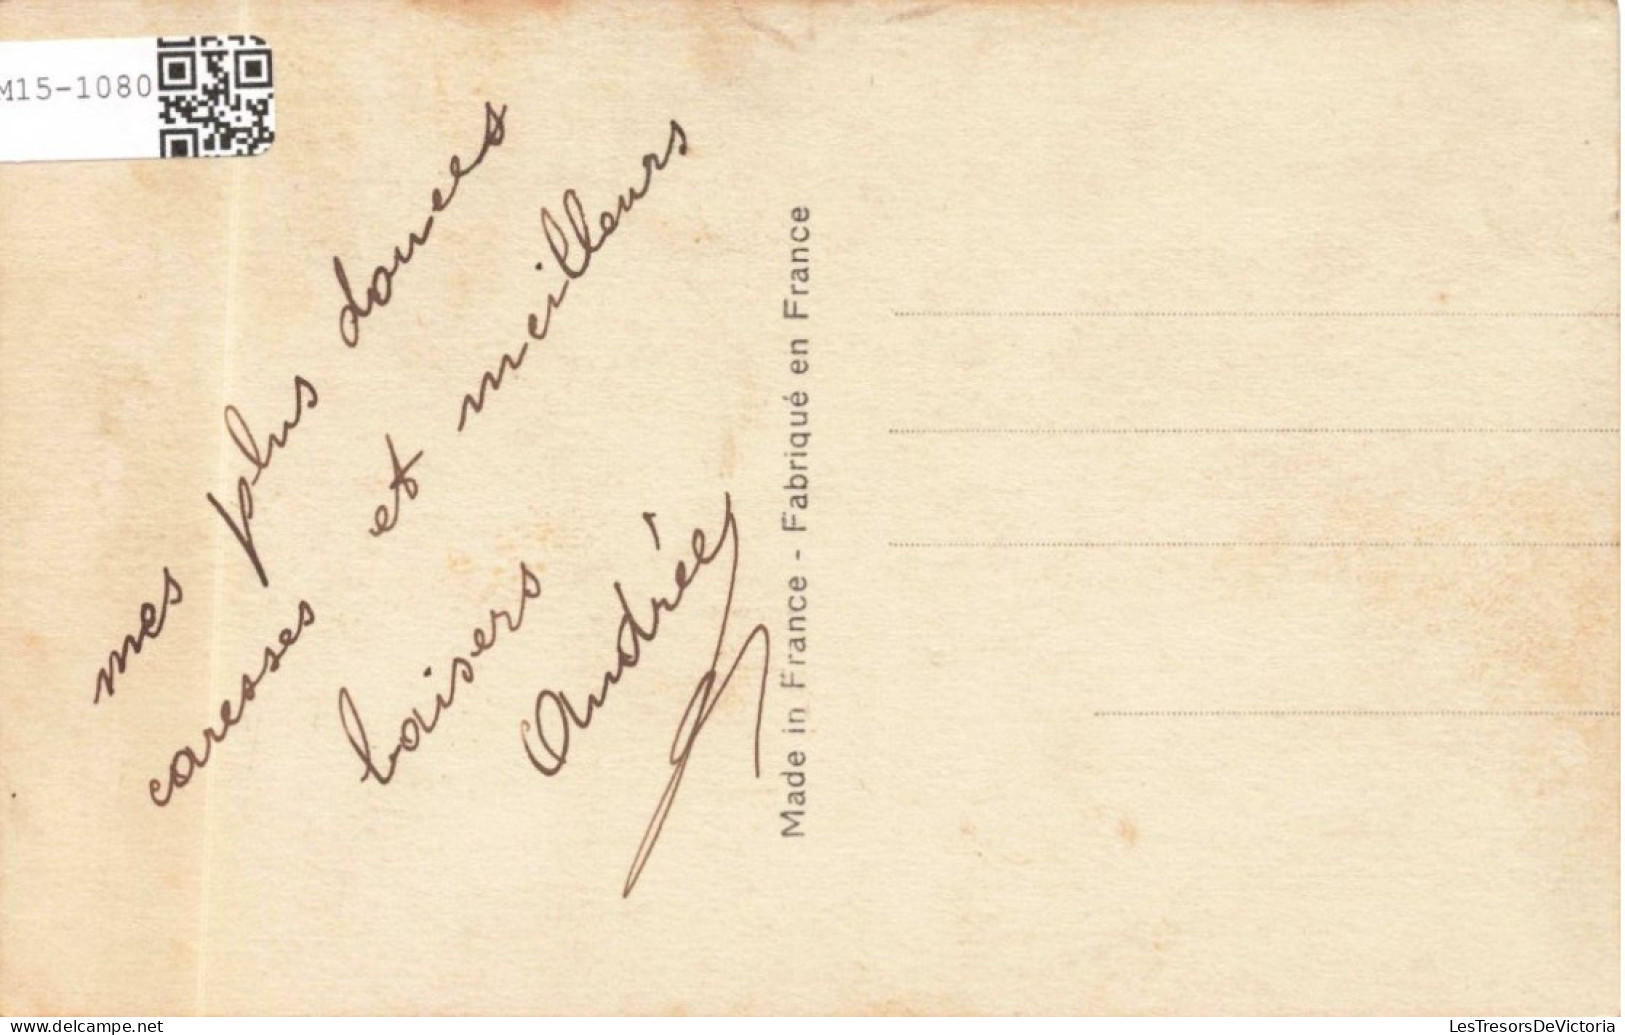 M15-1080
mes plus douces
caresses et meilleurs
baisers
Andrée
Made in France - Fabriqué en France
www.delcampe.net
LesTresorsDeVictoria